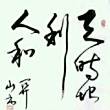 天時地
利
人和